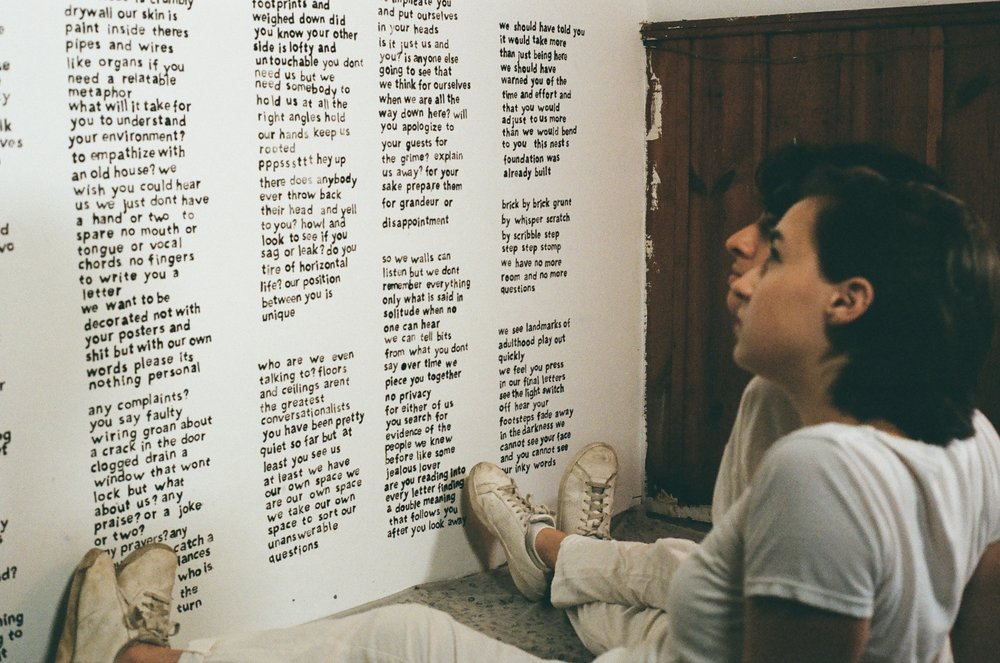 drywall our skin is
paint inside theres
pipes and wires
like organs if you
need a relatable
metaphor
what will it take for
you to understand
your environment?
to empathize with
an old house? we
wish you could hear
us we just dont have
a hand or two to
spare no mouth or
tongue or vocal
chords no fingers
to write you a
letter
we want to be
decorated not with
your posters and
shit but with our own
words please its
nothing personal
any complaints?
you say faulty
wiring groan about
a crack in the door
clogged drain a
window that wont
lock but what
about us? any
praise? or a joke
or two?
prayers? any
catch a
who is
the
turn
footprints and
weighed down did
you know your other
side is lofty and
untouchable you dont
need us but we
need somebody to
hold us at all the
right angles hold
our hands keep us
rooted
pppsssttt hey up
there does anybody
ever throw back
their head and yell
to you? howl and
look to see if you
sag or leak? do you
tire of horizontal
life? our position
between you is
unique
who are we even
talking to? floors
and ceilings arent
the greatest
conversationalists
you have been pretty
quiet so far but at
least you see us
at least we have
our own space we
are our own space
we take our own
space to sort our
unanswerable
questions
implicate you
and put ourselves
in your heads
is it just us and
you? is anyone else
going to see that
we think for ourselves
when we are all the
way down here? will
you apologize to
your guests for
the grime? explain
us away? for your
sake prepare them
for grandeur or
disappointment
so we walls can
listen but we dont
remember everything
only what is said in
solitude when no
one can hear
we can tell bits
from what you dont
say over time we
piece you together
no privacy
for either of us
you search for
evidence of the
people we knew
before like some
jealous lover
are you reading into
every letter finding
a double meaning
that follows you
after you look away
we should have told you
it would take more
than just being here
we should have
warned you of the
time and effort and
that you would
adjust to us more
than we would bend
to you this nests
foundation was
already built
brick by brick grunt
by whisper scratch
by scribble step
step step stomp
we have no more
room and no more
questions
we see landmarks of
adulthood play out
quickly
we feel you press
in our final letters
see the light switch
off hear your
footsteps fade away
in the darkness we
cannot see your face
and you cannot see
our inky words